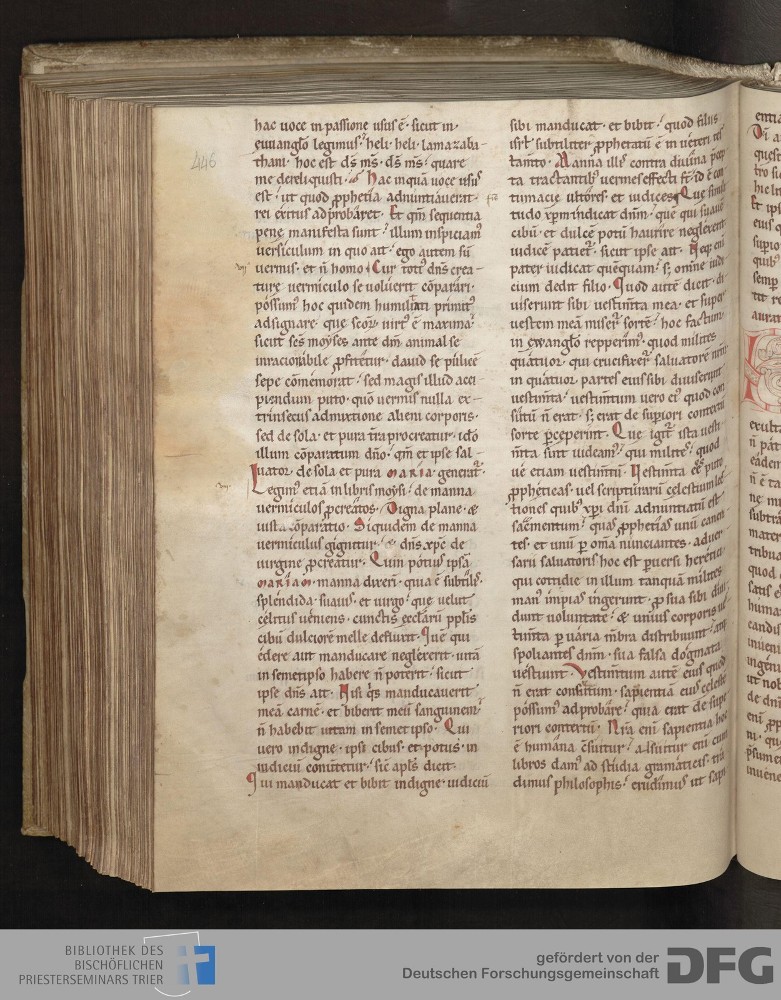 446
hac uoce in passione usus ē· sicut in
euuanglo legimus· heli· heli· lamazaba-
thani· hoc est ds ms· ds ms· quare
me dereliquisti· Hac inquā uoce usus
est· ut quod pphetia adnuntiauerat·
rei exitus adprobaret· Et qm sequentia
pene manifesta sunt· illum inspiciam
uersiculum in quo ait· ego autem sū
uermis· et n homo· Cur tot dns crea-
ture uermiculo se uoluerit cōparari·
possum hoc quidem humilitati primit
adsignare· que scōr uirt ē maxima·
sicut scs moyses ante dm animal se
inracionabile pfitetur· dauid se pulice
sepe cōmemorat· sed magis illud acci-
piendum puto· quō uermis nulla ex-
trinsecus admixtione alieni corporis·
sed de sola· et pura tra procreatur· idō
illum cōparatum dno· qm et ipse sal-
uator· de sola et pura MARIA· generat·
Legim etiā in libris moysi· de manna
uermiculos pcreatos· Digna plane· &
iusta cōparatio· Siquidem de manna
uermiculus gignitur· & dns xpc de
uirgine pcreatur· Quin potius ipsā
MARIAM· manna dixeri· quia ē subtilis·
splendida· suauis· et uirgo· que uelut
celitus ueniens· cunctis ecclarū pplis
cibū dulciorē melle defluxit· Quē qui
edere aut manducare neglexerit· uitā
in semetipso habere n poterit· sicut
ipse dns ait· Nisi qs manducauerit
meā carnē· et biberit meū sanguinem·
n habebit uitam in semet ipso· Qui
uero indigne· ipsi cibus· et potus· in
iudiciū conuertetur· sic apls dicit·
Qui manducat et bibit indigne· iudiciū
sibi manducat· et bibit· quod filiis
isrl subtiliter pphetatū ē in ueteri tes
tamto· Manna illis contra diuina pcep
ta tractantibus uermes effecti st· id ē con
tumacie ultores· et iudices· Que simili
tudo xpm indicat dnm· que qui suaue
cibū· et dulcē potū haurire neglexerit
iudicē patiet· sicut ipse ait· Neq; eni
pater iudicat quequam· s; omne iudi
cium dedit filio· Quod autē dicit· di
uiserunt sibi uestimta mea· et super
uestem meā miser sortē· hoc factum
in ewanglo repperim· quod milites
quatuor· qui crucifixer saluatorē nrm
in quatuor partes eius sibi diuiserunt
uestimta· uestimtum uero ei quod con
sutū n erat· s; erat de superiori contextū
sorte pceperint· Que igit ista uesti
mta sint uideam· qui milites· quod
ue etiam uestimtū· Vestimta eē puto
ppheticas· uel scripturarū celestium lec
tiones quib xpi dni adnuntiatū est
sacmentum· quas pphetias unū canen
tes· et unū p oma nunciantes· aduer
sarii saluatoris hoc est puersi heretici
qui cottidie in illum tanquā milites
man impias ingerunt· p sua sibi diui
dunt uoluntate· & unius corporis ues
timta p uaria mbra distribuunt· atq;
spoliantes dnm· sua falsa dogmata
uestiunt· Vestimtum autē eius quod
n erat consūtum· sapientiā eius celestē
possum adprobare· quia erat de supe
riori contextū· Nra eni sapientia hoc
ē humana cōsuitur· assuitur eni cum
libros dam ad studia gramaticis· tra
dimus philosophis· erudimus ut sapi
BIBLIOTHEK DES
BISCHÖFLICHEN
PRIESTERSEMINARS TRIER
gefördert von der
Deutschen Forschungsgemeinschaft
DFG